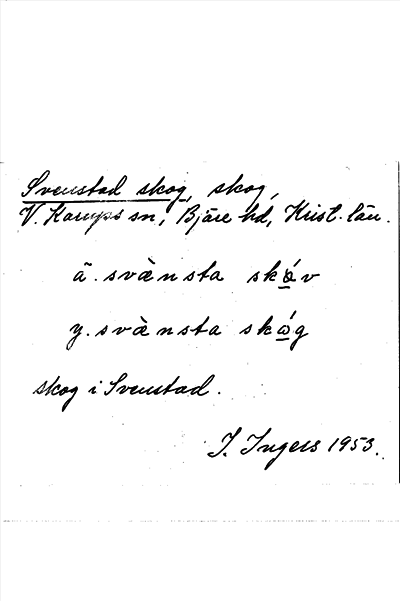 Svenstad skog, skog,
V. Karups sn, Bjäre hd, Krist. län.
ä. svànsta skǿv
y. svànsta skǿg
skog i Svenstad.
I. Ingers 1953.